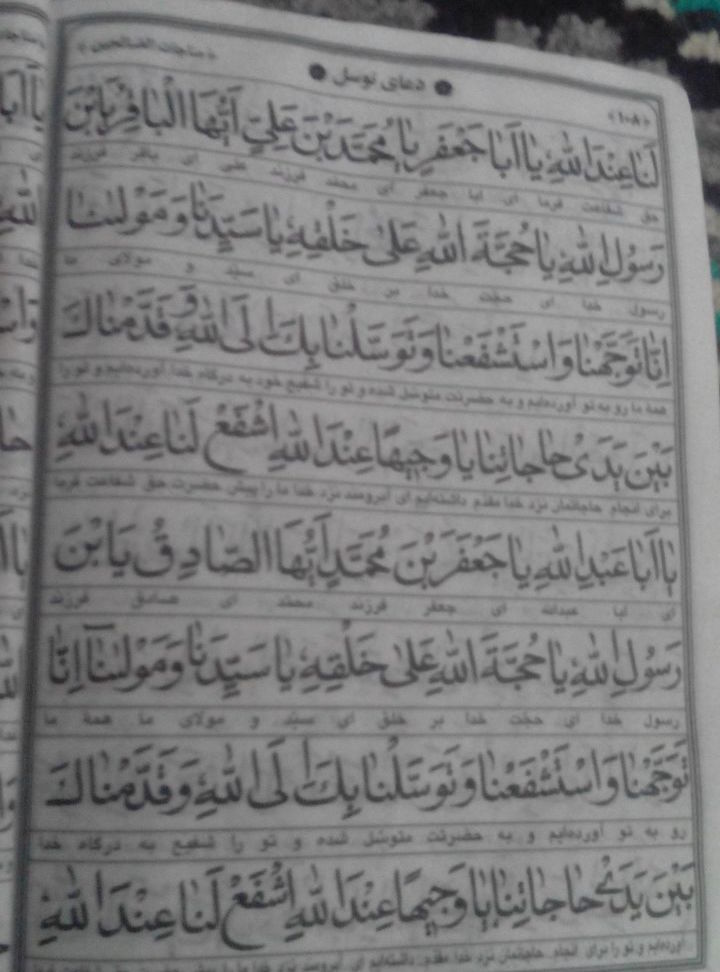 ﴿۱۰۸﴾ دعای توسل ﴿مناجات الصالحین﴾
لَنا عِنْدَ اللهِ یا اَبا جَعْفَرٍ یا مُحَمَّدَ بْنَ عَلِیٍّ اَیُّهَا الْباقِرُ یَا بْنَ
حق شفاعت فرما ای ابا جعفر ای محمد فرزند علی ای باقر فرزند
رَسُولِ اللهِ یا حُجَّةَ اللهِ عَلی خَلْقِهِ یا سَیِّدَنا وَ مَوْلینا
رسول خدا ای حجّت خدا بر خلق ای سیّد و مولای ما
اِنّا تَوَجَّهْنا وَ اسْتَشْفَعْنا وَ تَوَسَّلْنا بِکَ اِلَی اللهِ وَ قَدَّمْناکَ
همهٔ ما رو به تو آورده‌ایم و به حضرتت متوسّل شده و تو را شفیع خود به درگاه خدا آورده‌ایم و تو را
بَیْنَ یَدَیْ حاجاتِنا یا وَجیهًا عِنْدَ اللهِ اِشْفَعْ لَنا عِنْدَ اللهِ
برای انجام حاجاتمان نزد خدا مقدم داشته‌ایم ای آبرومند نزد خدا ما را پیش حضرت حق شفاعت فرما
یا اَبا عَبْدِ اللهِ یا جَعْفَرَ بْنَ مُحَمَّدٍ اَیُّهَا الصّادِقُ یَا بْنَ
ای ابا عبدالله ای جعفر فرزند محمّد ای صادق فرزند
رَسُولِ اللهِ یا حُجَّةَ اللهِ عَلی خَلْقِهِ یا سَیِّدَنا وَ مَوْلینآ اِنّا
رسول خدا ای حجّت خدا بر خلق ای سیّد و مولای ما همهٔ ما
تَوَجَّهْنا وَ اسْتَشْفَعْنا وَ تَوَسَّلْنا بِکَ اِلَی اللهِ وَ قَدَّمْناکَ
رو به تو آورده‌ایم و به حضرتت متوسّل شده و تو را شفیع به درگاه خدا
بَیْنَ یَدَیْ حاجاتِنا یا وَجیهًا عِنْدَ اللهِ اِشْفَعْ لَنا عِنْدَ اللهِ
آورده‌ایم و تو را برای انجام حاجاتمان نزد خدا مقدم داشته‌ایم ای آبرومند نزد خدا ما را